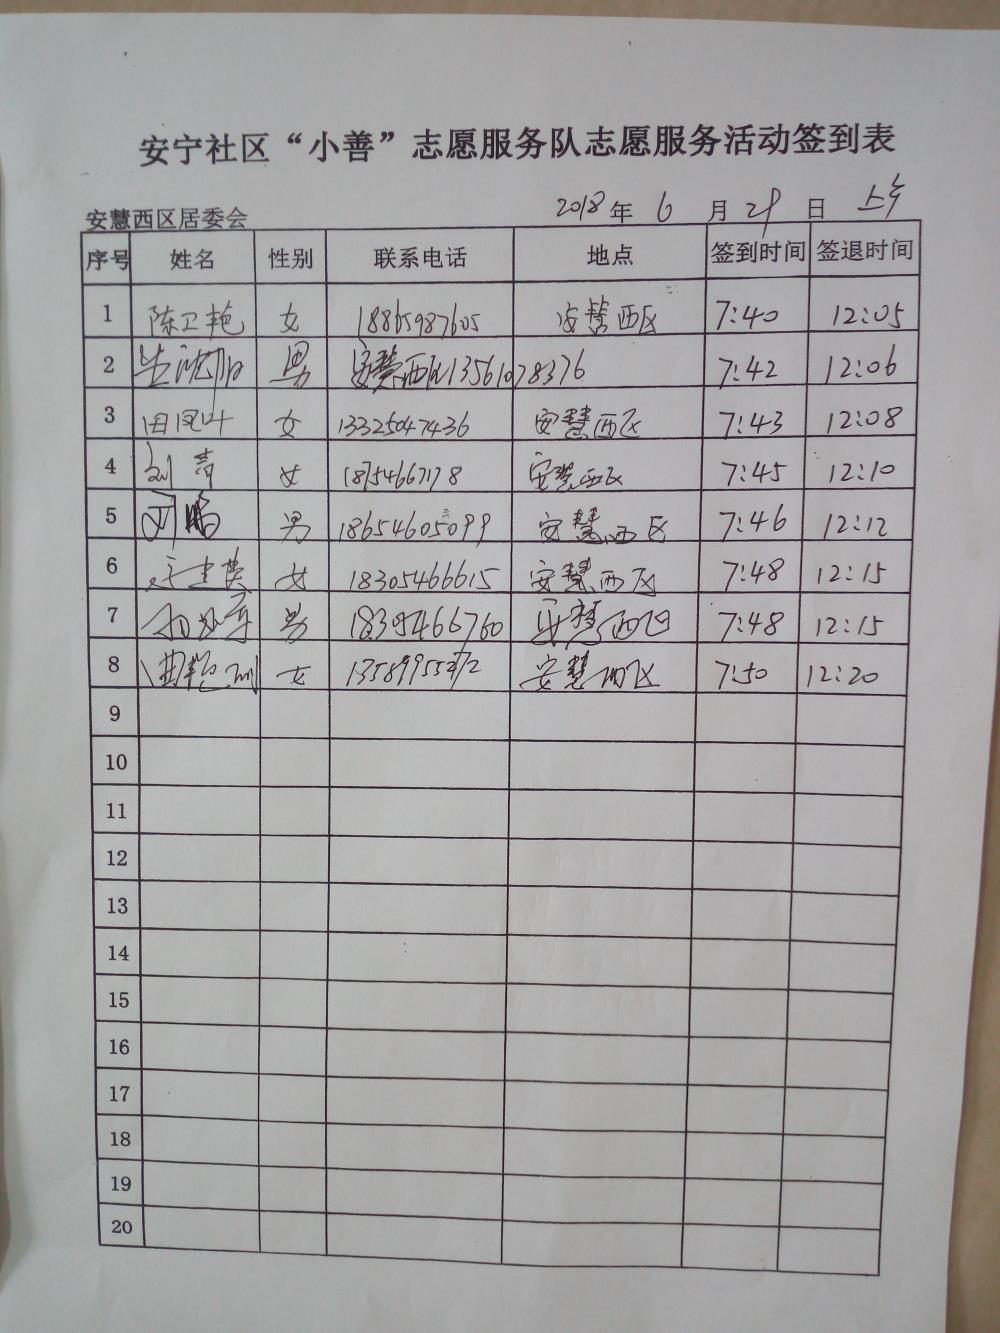 安宁社区“小善”志愿服务队志愿服务活动签到表
安慧西区居委会 2018 年 6 月 29 日 上午
序号 姓名 性别 联系电话 地点 签到时间 签退时间
1 陈卫艳 女 18865987605 安慧西区 7:40 12:05
2 男 安慧西区 13561078376 7:42 12:06
3 田凤叶 女 13325047436 安慧西区 7:43 12:08
4 刘青 女 18754667178 安慧西区 7:45 12:10
5 男 18654605099 安慧西区 7:46 12:12
6 女 18305466615 安慧西区 7:48 12:15
7 男 18395466760 安慧西区 7:48 12:15
8 曲艳丽 女 安慧西区 7:50 12:20
9
10
11
12
13
14
15
16
17
18
19
20